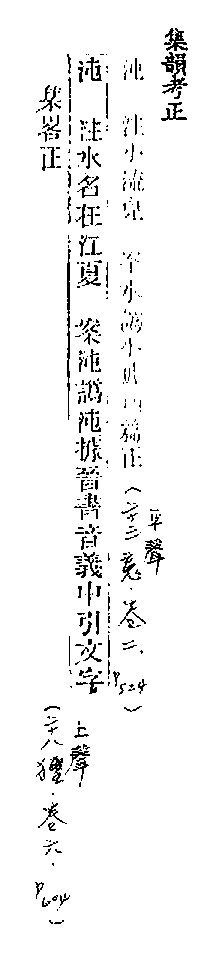 集韻考正
沌 注小流皃 案水譌小 正
平聲
(二十三魂·卷二、P524)
沌 注水名在江夏 案沌譌沌據晉書音義中引文字
集畧正
上聲
(二十八獮·卷六·P604)